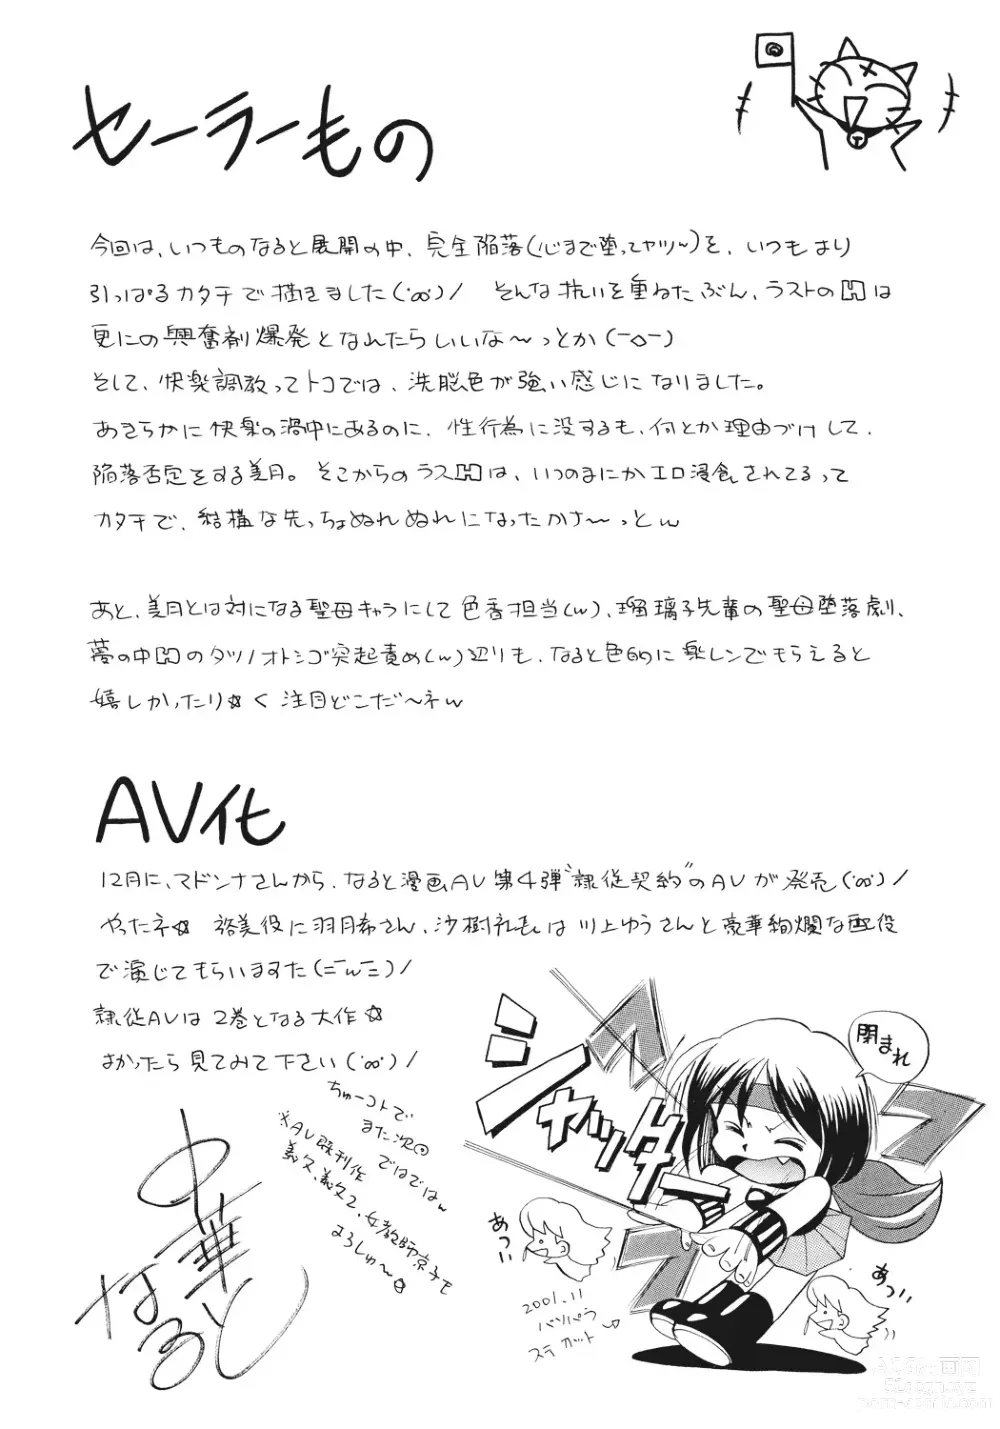 セーラーもの
今回は、いつものなると展開の中、完全陥落(心まで堕ってヤツ~)を、いつもより
引っぱるカタチで描きました(˙ꝏ˙)/ そんな抗いを重ねたぶん、ラストのHは
更にの興奮剤爆発となれたらいいな~っとか(ー◇ー)
そして、快楽調教ってトコでは、洗脳色が強い感じになりました。
あきらかに快楽の渦中にあるのに、性行為に没するも、何とか理由づけして、
陥落否定をする美月。そこからのラストHは、いつのまにかエロ浸食されてるって
カタチで、結構な先っちょぬれぬれになったかさ~っとw
あと、美月とは対になる聖母キャラにして色香担当(w)、瑠璃子先輩の聖母堕落劇、
夢の中Hのタツノオトシゴ突起責め(w)辺りも、なると色的に楽しンでもらえると
嬉しかったり☆く 注目どこだ~ネw
AV化
12月に、マドンナさんから、なると漫画AV第4弾"隷従契約"のAVが発売(˙ꝏ˙)/
やったネ☆ 裕美役に羽月希さん、沙樹礼は川上ゆうさんと豪華絢爛な配役
で演じてもらいますた(=¯w¯=)/
隷従AVは2巻となる大作☆
よかったら見てみて下さい(˙ꝏ˙)/
ちゅーコトで
また次回
ではではw
※AV既刊作
義父、義父2、女教師京子も
よろしゅ~☆
中華
なると
シャッター
閉まれ
あつい
あつい
2001.11
パソパラ
ステカット
AC6ehy画同
52acgn.xyz
porn-comic.com